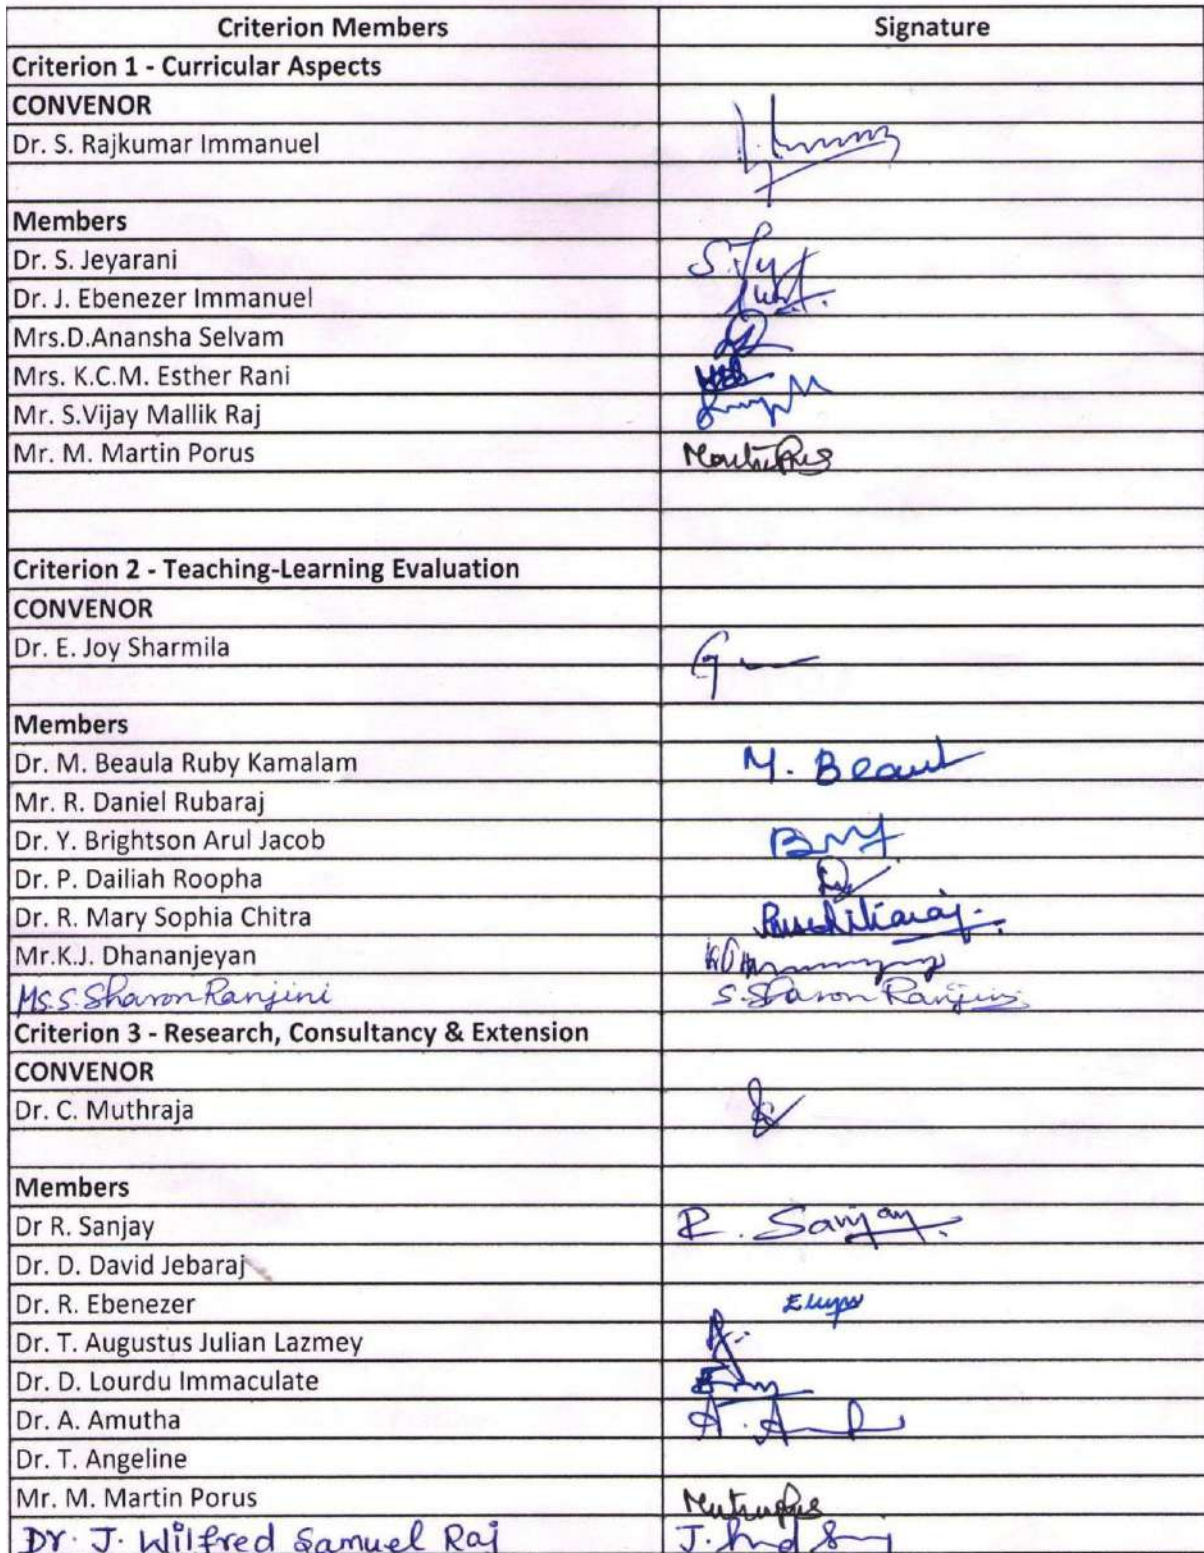 Criterion Members Signature
Criterion 1 - Curricular Aspects
CONVENOR
Dr. S. Rajkumar Immanuel
Members
Dr. S. Jeyarani
Dr. J. Ebenezer Immanuel
Mrs.D.Anansha Selvam
Mrs. K.C.M. Esther Rani
Mr. S.Vijay Mallik Raj
Mr. M. Martin Porus
Criterion 2 - Teaching-Learning Evaluation
CONVENOR
Dr. E. Joy Sharmila
Members
Dr. M. Beaula Ruby Kamalam M.
Mr. R. Daniel Rubaraj
Dr. Y. Brightson Arul Jacob
Dr. P. Dailiah Roopha
Dr. R. Mary Sophia Chitra
Mr.K.J. Dhananjeyan
Ms.S.Sharon Ranjini S.Sharon Ranjini
Criterion 3 - Research, Consultancy & Extension
CONVENOR
Dr. C. Muthraja
Members
Dr R. Sanjay R. Sanjay.
Dr. D. David Jebaraj
Dr. R. Ebenezer
Dr. T. Augustus Julian Lazmey
Dr. D. Lourdu Immaculate
Dr. A. Amutha
Dr. T. Angeline
Mr. M. Martin Porus
Dr. J. Wilfred Samuel Raj J.